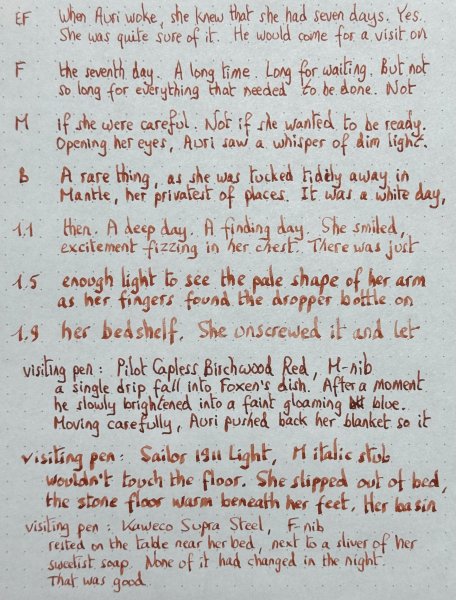 EF When Auri woke, she knew that she had seven days. Yes.
She was quite sure of it. He would come for a visit on
F the seventh day. A long time. Long for waiting. But not
so long for everything that needed to be done. Not
M if she were careful. Not if she wanted to be ready.
Opening her eyes, Auri saw a whisper of dim light.
B A rare thing, as she was tucked tidely away in
Mantle, her privatest of places. It was a white day,
1.1 then. A deep day. A finding day. She smiled,
excitement fizzing in her chest. There was just
1.5 enough light to see the pale shape of her arm
as her fingers found the dropper bottle on
1.9 her bedshelf. She unscrewed it and let
visiting pen: Pilot Capless Birchwood Red, M-nib
a single drip fall into Foxen's dish. After a moment
he slowly brightened into a faint gloaming blue.
Moving carefully, Auri pushed back her blanket so it
visiting pen: Sailor 1911 Light, M italic stub
wouldn't touch the floor. She slipped out of bed,
the stone floor warm beneath her feet. Her basin
visiting pen: Kaweco Supra Steel, F-nib
rested on the table near her bed, next to a sliver of her
sweetist soap. None of it had changed in the night.
That was good.